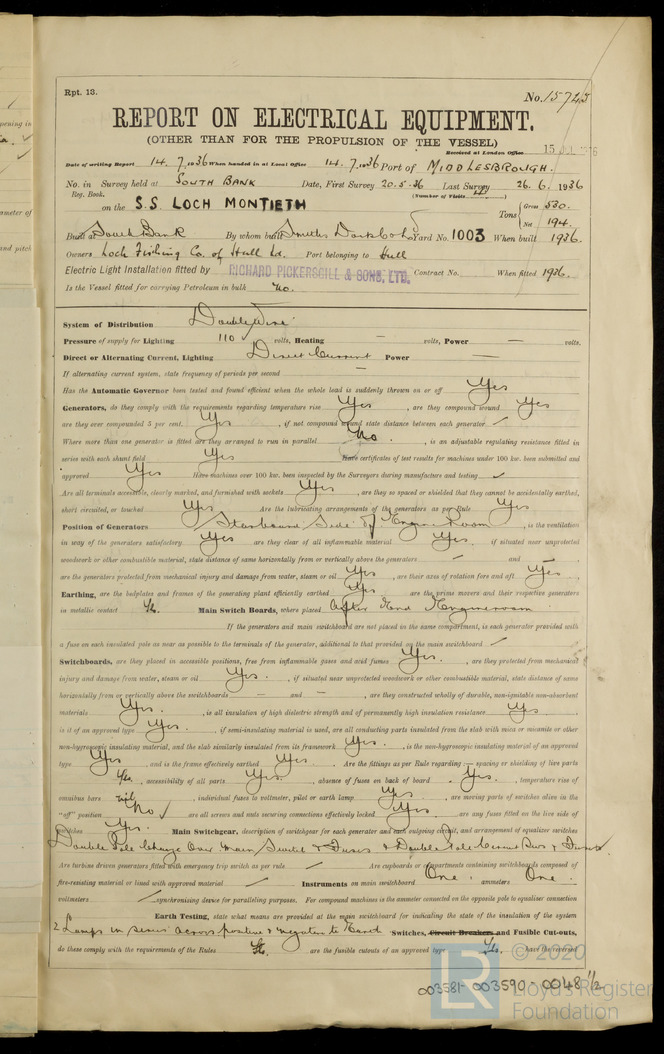 Rpt. 13.
No. 15743
REPORT ON ELECTRICAL EQUIPMENT.
(OTHER THAN FOR THE PROPULSION OF THE VESSEL)
Received at London Office 15
Date of writing Report 14. 7. 1936 When handed in at Local Office 14. 7. 1936 Port of MIDDLESBROUGH.
No. in Survey held at SOUTH BANK Date, First Survey 20.5.36 Last Survey 26.6.1936
Reg. Book. (Number of Visits)
on the S.S LOCH MONTIETH Tons Gross 530.
Net 194.
Built at South Bank By whom built Smiths Dock Co Ld Yard No. 1003 When built 1936.
Owners Loch Fishing Co. of Hull Ld. Port belonging to Hull
Electric Light Installation fitted by RICHARD PICKERSGILL & SONS, LTD. Contract No. When fitted 1936.
Is the Vessel fitted for carrying Petroleum in bulk No.
System of Distribution Double Wire
Pressure of supply for Lighting 110 volts, Heating — volts, Power — volts.
Direct or Alternating Current, Lighting Direct Current Power —
If alternating current system, state frequency of periods per second —
Has the Automatic Governor been tested and found efficient when the whole load is suddenly thrown on or off Yes
Generators, do they comply with the requirements regarding temperature rise Yes, are they compound wound Yes
are they over compounded 5 per cent. Yes, if not compound wound state distance between each generator
Where more than one generator is fitted are they arranged to run in parallel No., is an adjustable regulating resistance fitted in
series with each shunt field Yes Have certificates of test results for machines under 100 kw. been submitted and
approved Yes Have machines over 100 kw. been inspected by the Surveyors during manufacture and testing
Are all terminals accessible, clearly marked, and furnished with sockets Yes, are they so spaced or shielded that they cannot be accidentally earthed,
short circuited, or touched Yes Are the lubricating arrangements of the generators as per Rule Yes
Position of Generators Starboard Side of Engine Room, is the ventilation
in way of the generators satisfactory Yes are they clear of all inflammable material Yes. if situated near unprotected
woodwork or other combustible material, state distance of same horizontally from or vertically above the generators — and —
are the generators protected from mechanical injury and damage from water, steam or oil Yes, are their axes of rotation fore and aft Yes.
Earthing, are the bedplates and frames of the generating plant efficiently earthed Yes are the prime movers and their respective generators
in metallic contact Yes. Main Switch Boards, where placed After End Engineroom.
If the generators and main switchboard are not placed in the same compartment, is each generator provided with
a fuse on each insulated pole as near as possible to the terminals of the generator, additional to that provided on the main switchboard
Switchboards, are they placed in accessible positions, free from inflammable gases and acid fumes Yes., are they protected from mechanical
injury and damage from water, steam or oil Yes., if situated near unprotected woodwork or other combustible material, state distance of same
horizontally from or vertically above the switchboards — and —, are they constructed wholly of durable, non-ignitable non-absorbent
materials Yes., is all insulation of high dielectric strength and of permanently high insulation resistance Yes
is it of an approved type Yes., if semi-insulating material is used, are all conducting parts insulated from the slab with mica or micanite or other
non-hygroscopic insulating material, and the slab similarly insulated from its framework Yes., is the non-hygroscopic insulating material of an approved
type Yes, and is the frame effectively earthed Yes. Are the fittings as per Rule regarding :— spacing or shielding of live parts
Yes., accessibility of all parts Yes., absence of fuses on back of board Yes., temperature rise of
omnibus bars, individual fuses to voltmeter, pilot or earth lamp Yes, are moving parts of switches alive in the
"off" position No are all screws and nuts securing connections effectively locked Yes. are any fuses fitted on the live side of
switches Yes. Main Switchgear, description of switchgear for each generator and each outgoing circuit, and arrangement of equalizer switches
Double Pole Change Over Main Switch & Fuses & Double Pole Circuit Sws & Fuses
Are turbine driven generators fitted with emergency trip switch as per rule Are cupboards or compartments containing switchboards composed of
fire-resisting material or lined with approved material Instruments on main switchboard One. ammeters One.
voltmeters synchronising device for paralleling purposes. For compound machines is the ammeter connected on the opposite pole to equaliser connection
Earth Testing, state what means are provided at the main switchboard for indicating the state of the insulation of the system
2 Lamps in series across positive & negative to Earth Switches, Circuit Breakers and Fusible Cut-outs,
do these comply with the requirements of the Rules Yes. are the fusible cutouts of an approved type Yes. have the reversed
003581-003590-0048 1/2
LR
© 2020
Lloyd's Register
Foundation